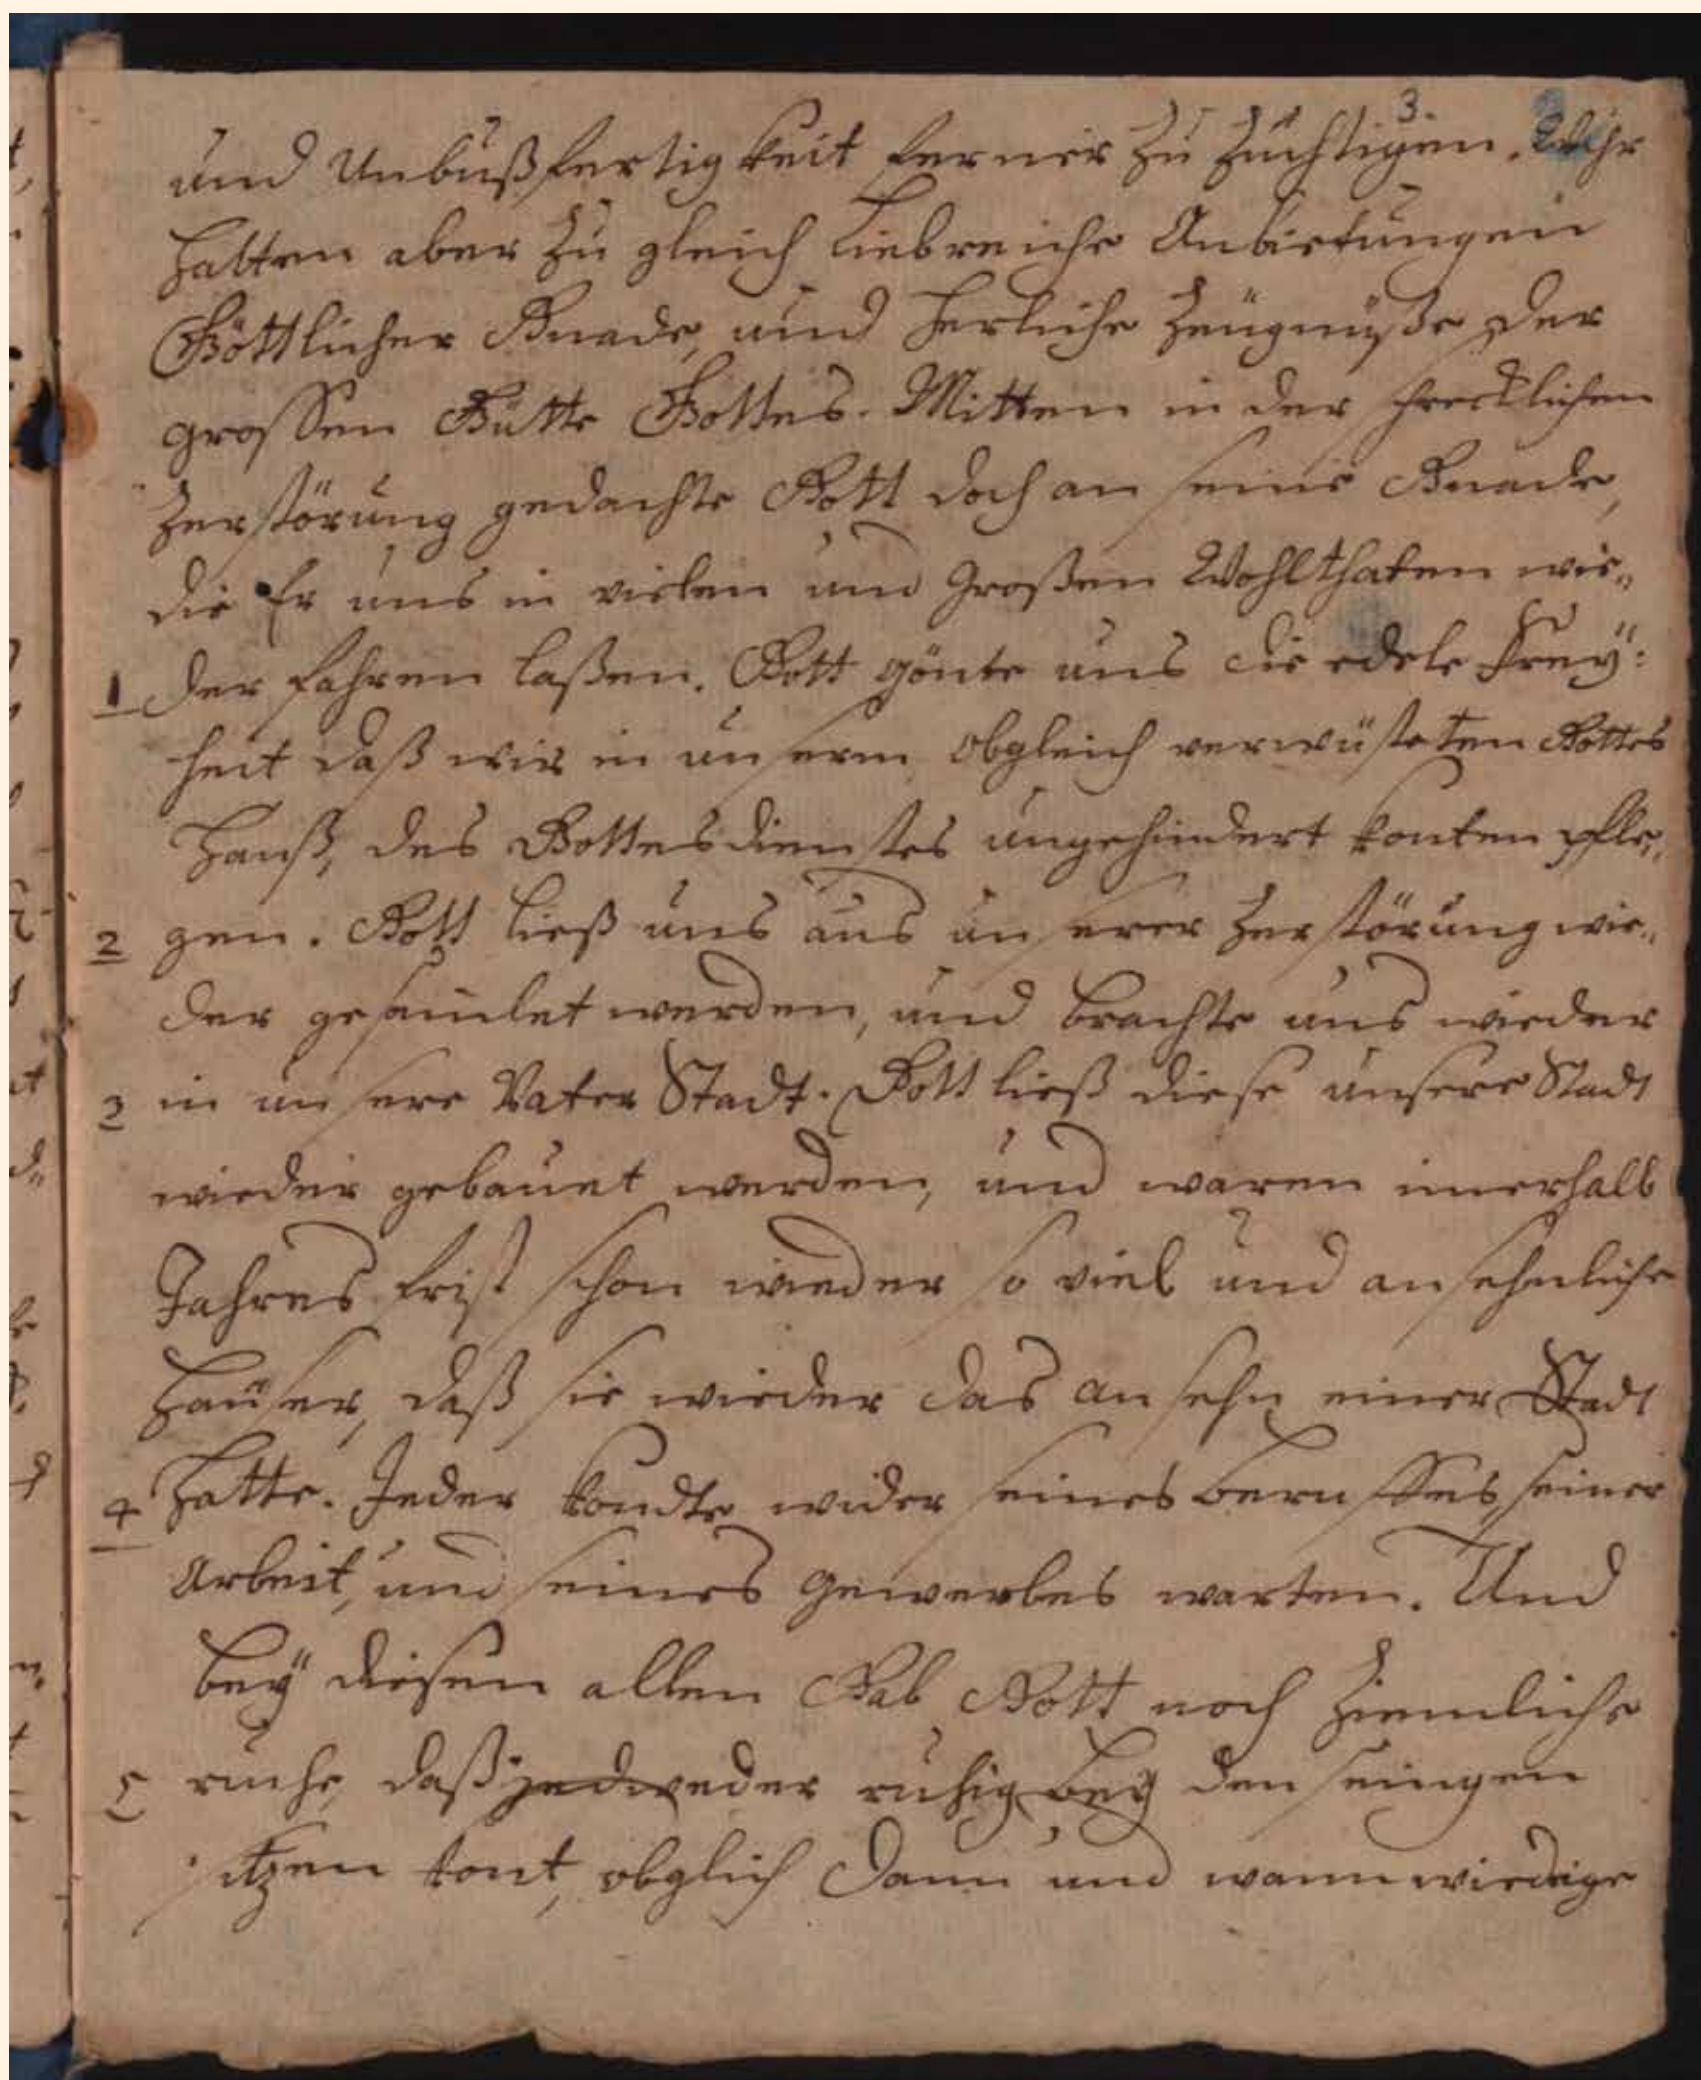 3.
und Unbußfertigkeit ferner zu züchtigen. Wihr
hatten aber zu gleich liebreiche Anbietungen
Göttlicher Gnade, und herliche Zeügnüße der
grossen Gütte Gottes. Mitten in der schrecklichen
Zerstörung gedachte Gott doch an seine Gnade,
die Er uns in vielen und Großen Wohlthaten wie„
1 der fahren laßen. Gott gönte uns die edele Frey:
heit daß wir in unserm obgleich verwüsteten Gottes
Hauß, des Gottesdienstes ungehindert konten pfle„
2 gen. Gott ließ uns aus unserer Zerstörung wie„
der gesamlet werden, und brachte uns wieder
3 in unsere Vater Stadt. Gott ließ diese unsere Stadt
wieder gebauet werden, und waren innerhalb
Jahres frist schon wieder so viel und ansehnliche
Häuser, daß sie wieder das ansehn einer Stadt
4 hatte. Jeder kondte wider seines beruffes, seiner
Arbeit, und seines gewerbes warten. Und
bey diesem allen Gab Gott noch ziemliche
5 ruhe, daß jedweder ruhig bey den seingen
sitzen kont, obglich dann und wann wiedrige